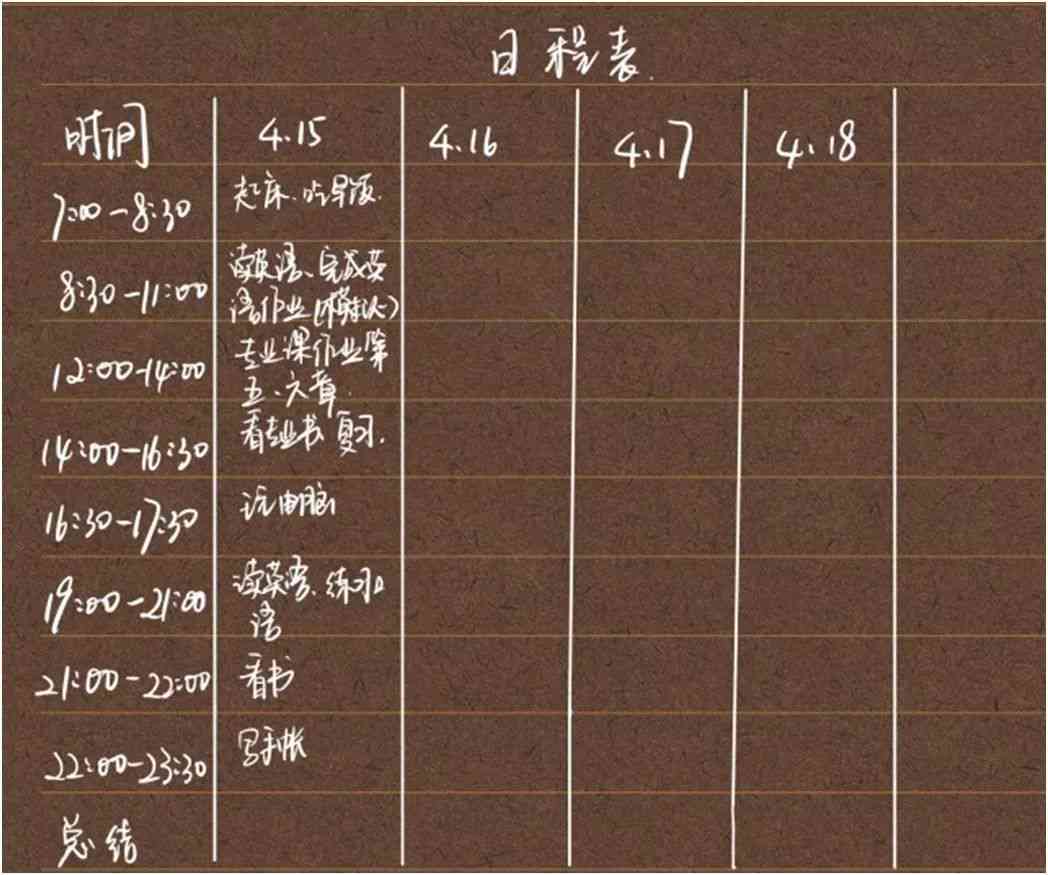 日程表
时间 4.15 4.16 4.17 4.18
7:00-8:30 起床、吃早饭.
8:30-11:00 读英语、完成英
语作业(模拟一)
12:00-14:00 专业课作业第
五、六章.
14:00-16:30 看专业书 复习.
16:30-17:30 玩电脑
19:00-21:00 读英语、练习口
语
21:00-22:00 看书
22:00-23:30 写手帐
总结